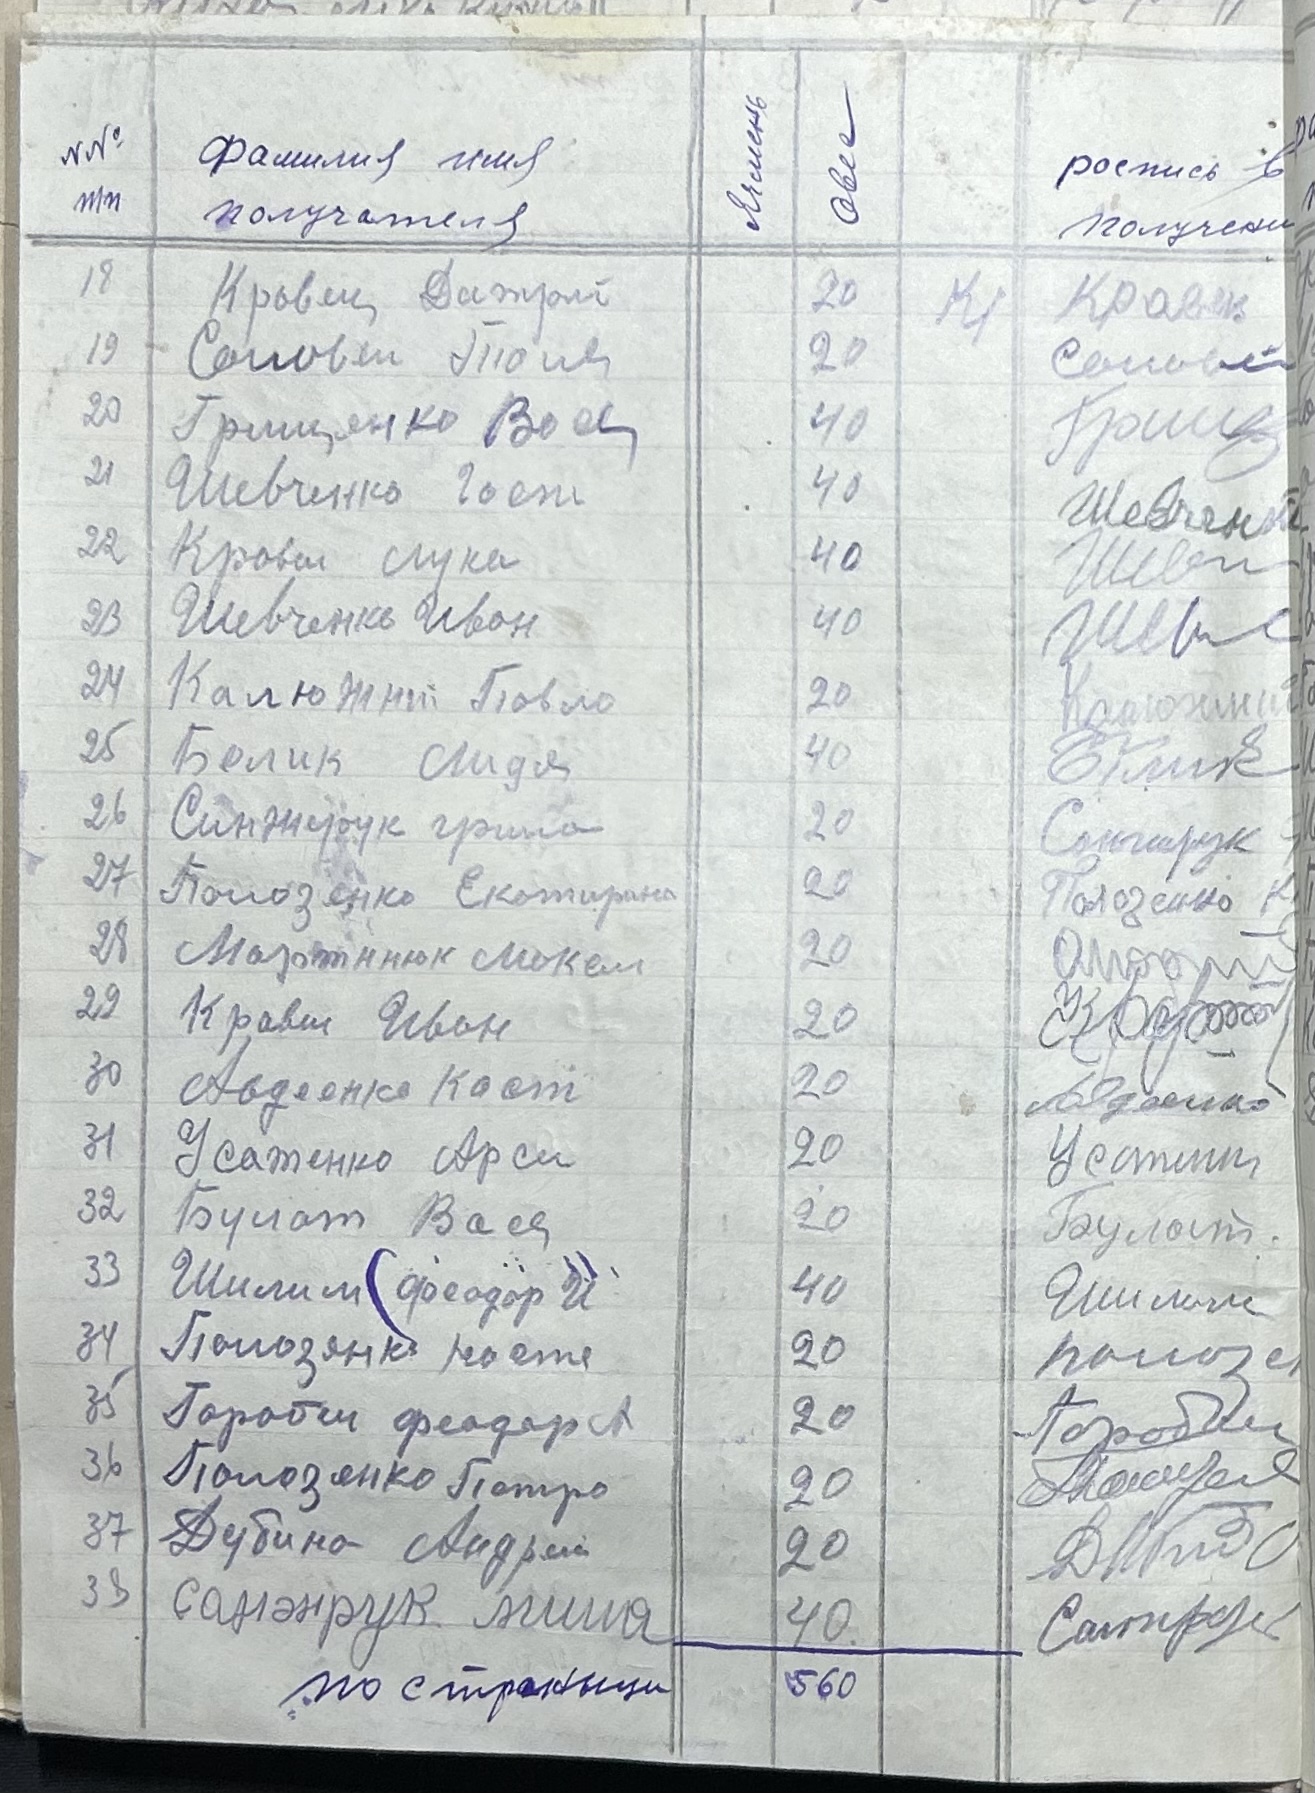 №№ Фамилия имя Ячмень Овес роспись в
п/п получателя получени
18 Кравец Дмитрий 20 Кр Кравец
19 Соловей Поля 20 Соловей
20 Грищенко Вася 40 Грищ
21 Шевченко Гост 40 Шевченко
22 Кравец Лука 40
23 Шевченко Иван 40 Шев
24 Калюжний Павло 20 Калюжний
25 Белик Лидя 40 Белик
26 Синжерук гриша 20
27 Полозенко Екатирина 20 Полозенко К
28 Мартинюк Моксем 20
29 Кравец Иван 20
30 Авдеенко Кост 20 Авдеенко
31 Усатенко Арсе 20 Усатенк
32 Булат Вася 20 Булат.
33 Шилим (феодор И 40 Шилим
34 Полозенко Костя 20 полозе
35 Горобец феодор А 20 Горобец
36 Полозенко Петро 20
37 Дубина Андрей 20
38 Санжрук миша 40
по страныци 560